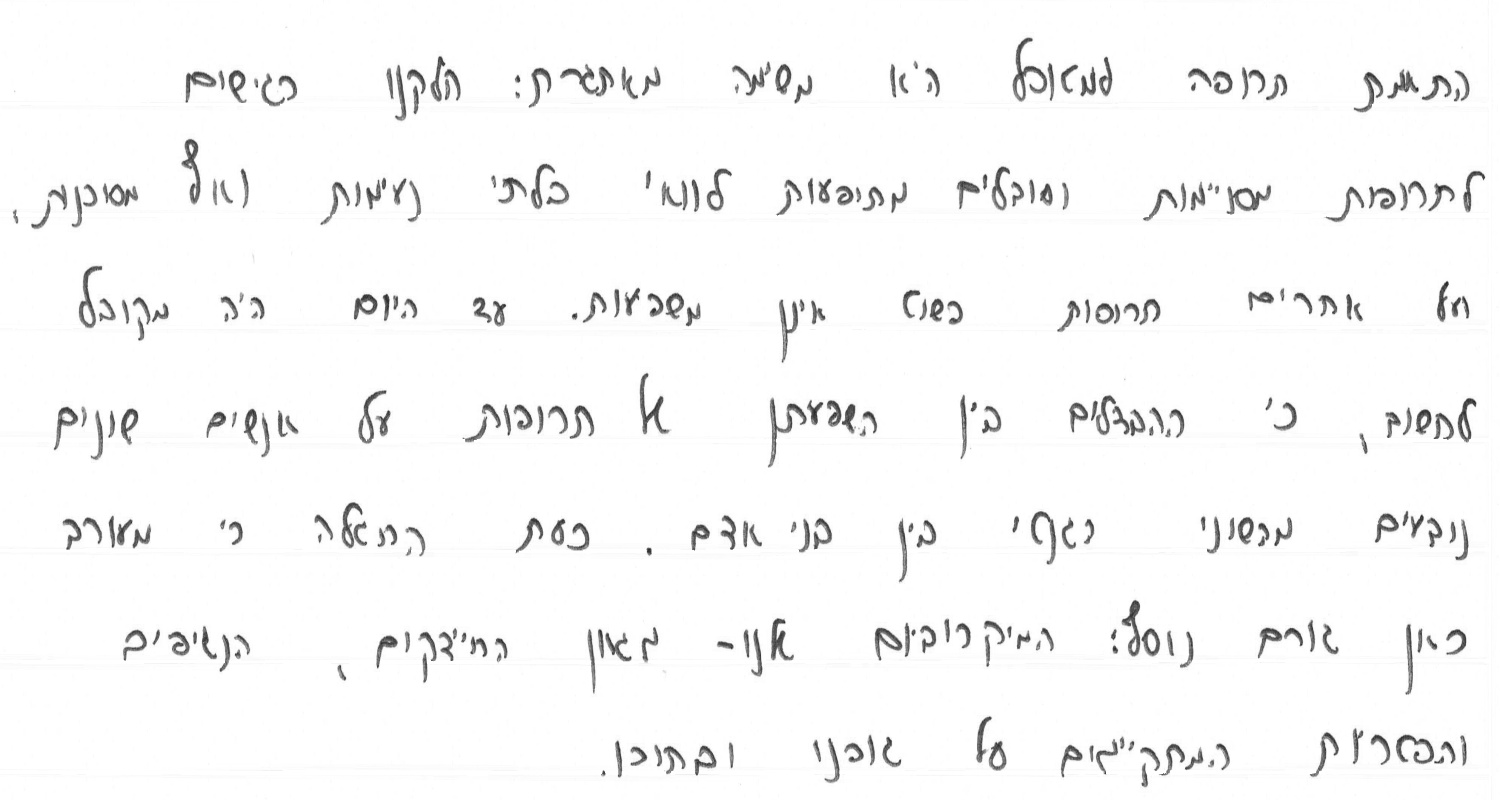 התאמת תרופה למטופל היא משימה מאתגרת: חלקנו רגישים
לתרופות מסויימות וסובלים מתופעות לוואי בלתי נעימות ואף מסוכנות,
ועל אחרים תרופות פשוט אינן משפיעות. עד היום היה מקובל
לחשוב, כי ההבדלים בין השפעתן של תרופות על אנשים שונים
נובעים מהשוני הגנטי בין בני אדם. כעת התגלה כי מעורב
כאן גורם נוסף: המיקרוביום שלנו- מגוון החיידקים, הנגיפים
והפטריות המתקיימים על גופנו ובתוכו.